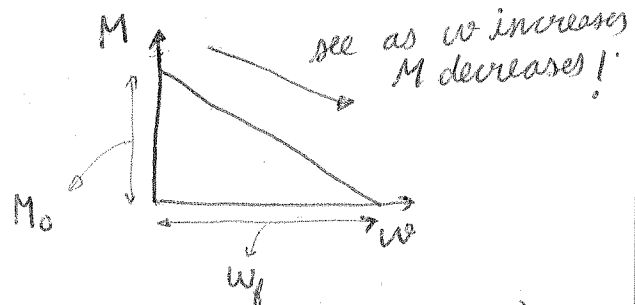 M
see as w increases
M decreases!
M₀
w
w_f